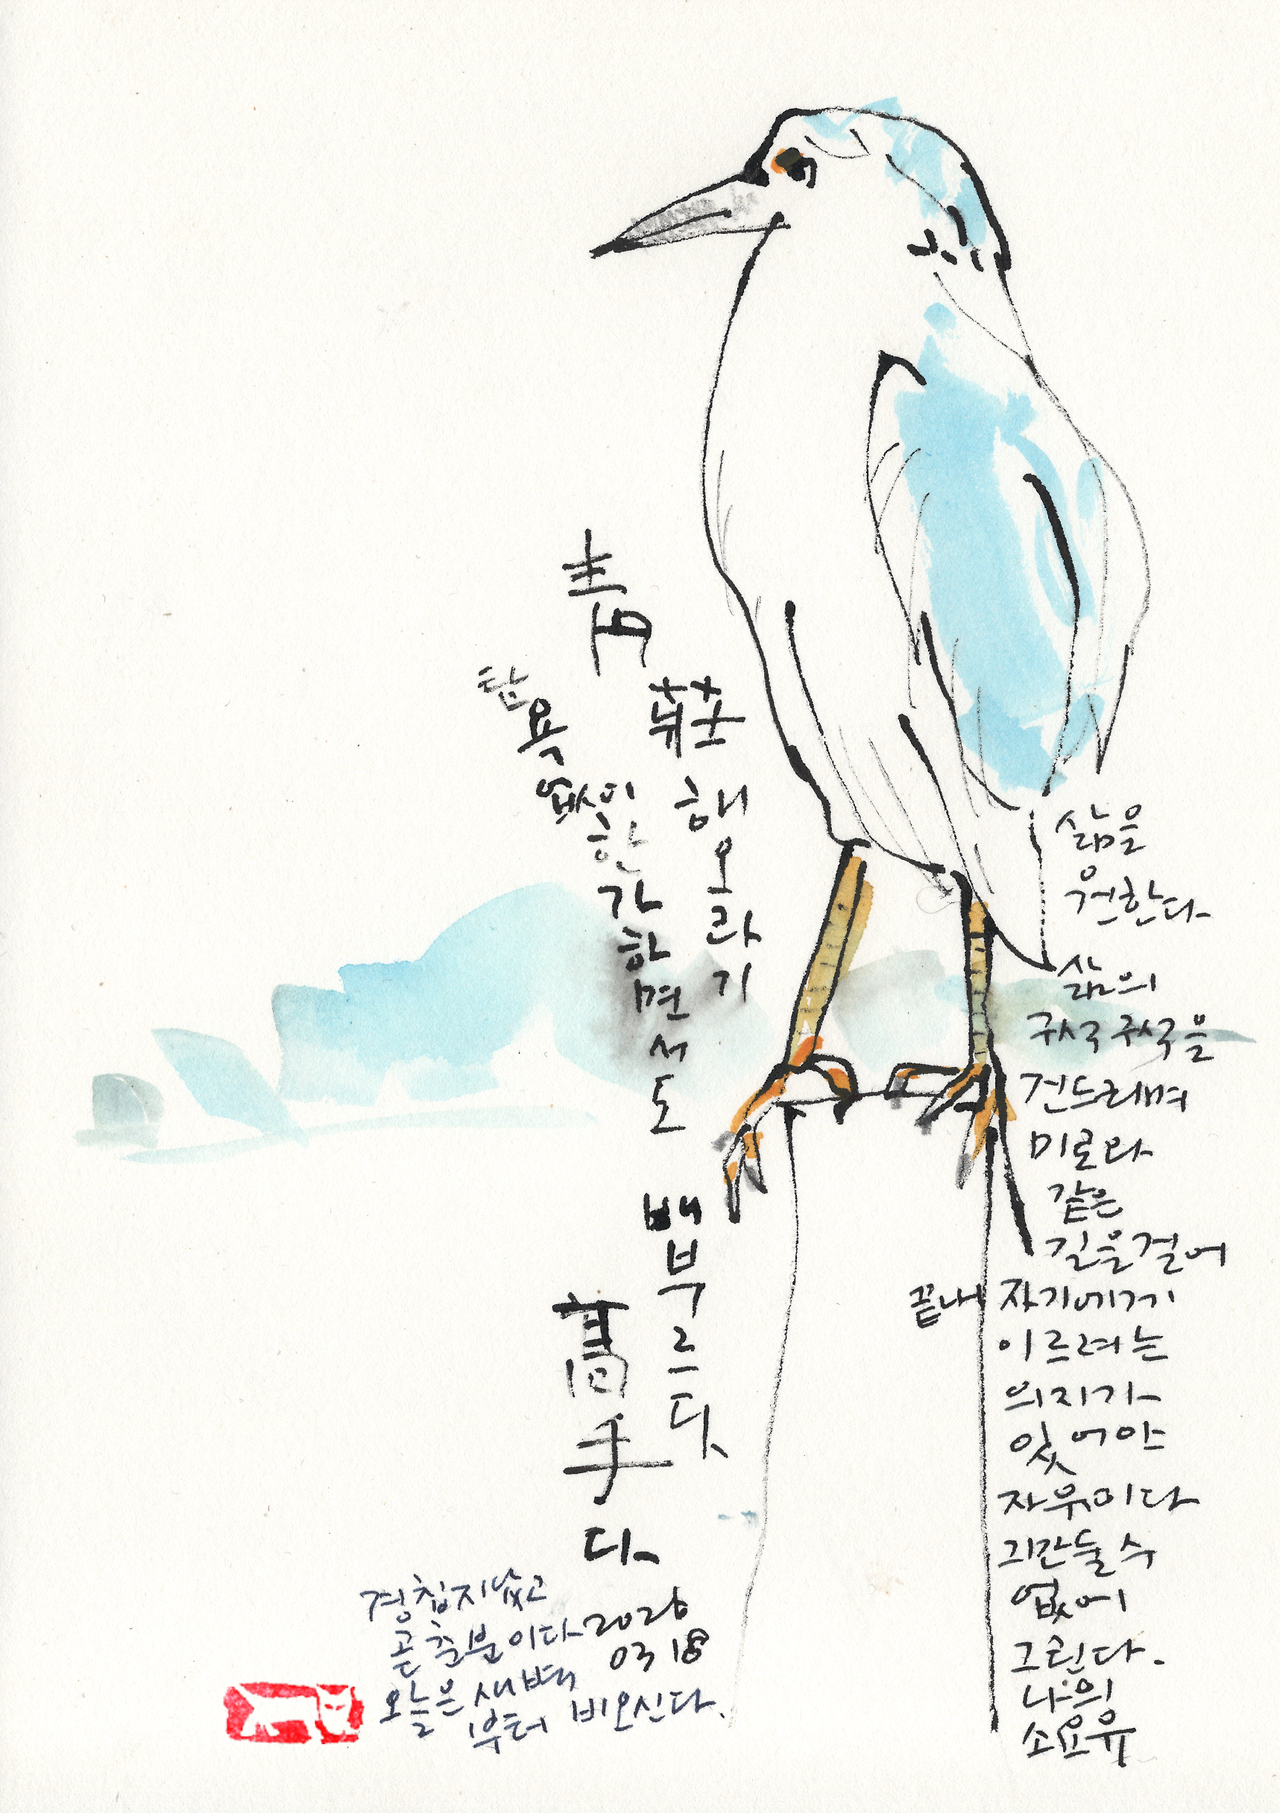 靑
莊
해오라기
탐욕없이
한가하면서도
배부르다.
高手다
삶을
원한다
삶의
구석구석을
건드리며
미로와
같은
길을걸어
끝내 자기에게
이르려는
의지가
있어야
자유이다
그만둘수
없어
그린다.
나의
소요유
경칩지났고
곧춘분이다
오늘은 새벽
부터 비오신다.
2026
03 18